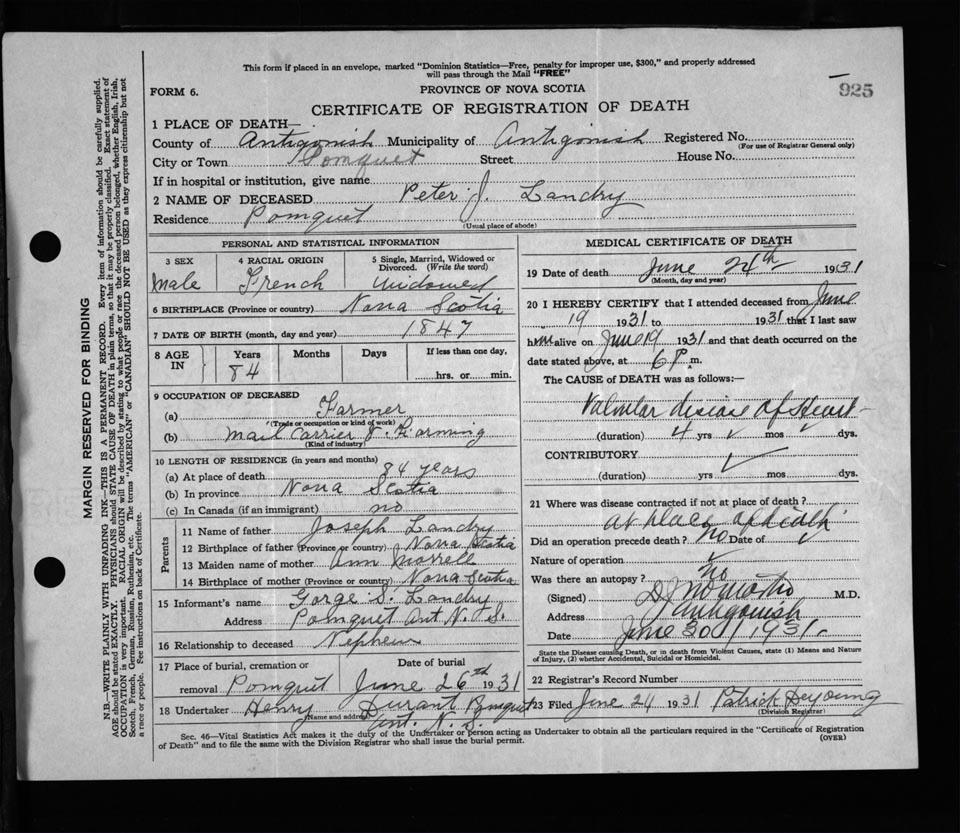 This form if placed in an envelope, marked "Dominion Statistics—Free, penalty for improper use, $300," and properly addressed
will pass through the Mail "FREE"
925
FORM 6.
PROVINCE OF NOVA SCOTIA
CERTIFICATE OF REGISTRATION OF DEATH
1 PLACE OF DEATH—
County of Antigonish Municipality of Antigonish Registered No.
(For use of Registrar General only)
City or Town Pomquet Street House No.
If in hospital or institution, give name
2 NAME OF DECEASED Peter J. Landry
Residence Pomquet
(Usual place of abode)
PERSONAL AND STATISTICAL INFORMATION
3 SEX 4 RACIAL ORIGIN 5 Single, Married, Widowed or Divorced. (Write the word)
Male French Widowed
6 BIRTHPLACE (Province or country) Nova Scotia
7 DATE OF BIRTH (month, day and year) 1847
8 AGE IN Years Months Days If less than one day,
84 hrs. or min.
9 OCCUPATION OF DECEASED
(a) Farmer
(Trade or occupation or kind of work)
(b) Mail Carrier & Farming
(Kind of industry)
10 LENGTH OF RESIDENCE (in years and months)
(a) At place of death 84 years
(b) In province Nova Scotia
(c) In Canada (if an immigrant) no
Parents
11 Name of father Joseph Landry
12 Birthplace of father (Province or country) Nova Scotia
13 Maiden name of mother Ann Morrell
14 Birthplace of mother (Province or country) Nova Scotia
15 Informant's name Gorge S. Landry
Address Pomquet Ant N. S.
16 Relationship to deceased Nephew
17 Place of burial, cremation or removal Pomquet Date of burial June 26th 1931
18 Undertaker Henry Durant Pomquet
(Name and address) Ant. N. S.
MEDICAL CERTIFICATE OF DEATH
19 Date of death June 24th 1931
(Month, day and year)
20 I HEREBY CERTIFY that I attended deceased from June
19 1931 to 1931 that I last saw
him alive on June 19 1931 and that death occurred on the
date stated above, at 6 P. m.
The CAUSE of DEATH was as follows:—
Valvular disease of Heart
(duration) 4 yrs mos dys.
CONTRIBUTORY
(duration) yrs mos dys.
21 Where was disease contracted if not at place of death?
at place of death
Did an operation precede death? no Date of
Nature of operation
Was there an autopsy? no
(Signed) M.D.
Address Antigonish
Date June 30 1931
State the Disease causing Death, or in death from Violent Causes, state (1) Means and Nature
of Injury, (2) whether Accidental, Suicidal or Homicidal.
22 Registrar's Record Number
23 Filed June 24 1931 Patrick Deyoung
(Division Registrar)
Sec. 46—Vital Statistics Act makes it the duty of the Undertaker or person acting as Undertaker to obtain all the particulars required in the "Certificate of Registration
of Death" and to file the same with the Division Registrar who shall issue the burial permit.
(OVER)
MARGIN RESERVED FOR BINDING
N.B.—WRITE PLAINLY WITH UNFADING INK—THIS IS A PERMANENT RECORD. Every item of information should be carefully supplied.
AGE should be stated EXACTLY. PHYSICIANS should STATE CAUSE OF DEATH in plain terms, so that it may be properly classified. Exact statement of
OCCUPATION is very important. RACIAL ORIGIN will be described by stating to what people or race the deceased person belonged, whether English, Irish,
Scotch, French, German, Russian, Ruthenian, etc. The terms "AMERICAN" or "CANADIAN" SHOULD NOT BE USED as they express citizenship but not
a race or people. See instructions on back of Certificate.